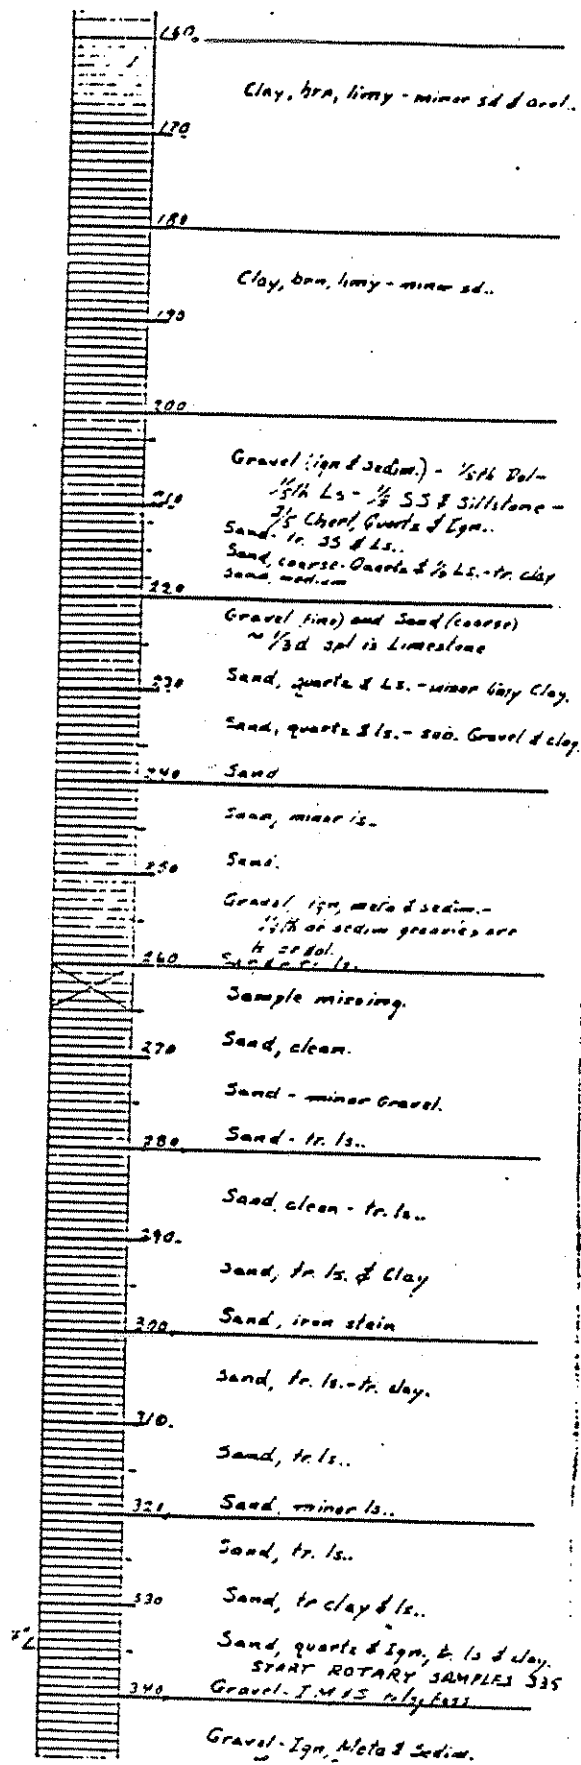 160.
Clay, brn, limy - minor sd & Grvl..
170
180
Clay, brn, limy - minor sd..
190
200
Gravel (ign & sedim.) - 1/5th Dol -
1/5th Ls - 1/5 SS & Siltstone -
210
2/5 Chert, Quartz & Ign..
Sand - tr. SS & Ls..
Sand, coarse - Quartz & Ls. - tr. clay
Sand, medium
220
Gravel (fine) and Sand (coarse)
~ 1/3d spl is Limestone
230
Sand, quartz & Ls. - minor limy Clay.
Sand, quartz & ls. - Gravel & clay.
240
Sand
Sand, minor ls.
250
Sand.
Gravel, ign, meta & sedim. -
of sedim are
ls or dol.
260
Sample missing.
270
Sand, clean.
Sand - minor Gravel.
280
Sand - tr. ls..
Sand, clean - tr. ls..
290.
Sand, tr. ls. & Clay
300
Sand, iron stain
Sand, tr. ls. - tr. clay.
310.
Sand, tr. ls..
320
Sand, minor ls..
Sand, tr. ls..
330
Sand, tr clay & ls..
Sand, quartz & Ign., tr. ls & clay.
START ROTARY SAMPLES 335
340
Gravel - I.M & S
Gravel - Ign, Meta & Sedim.